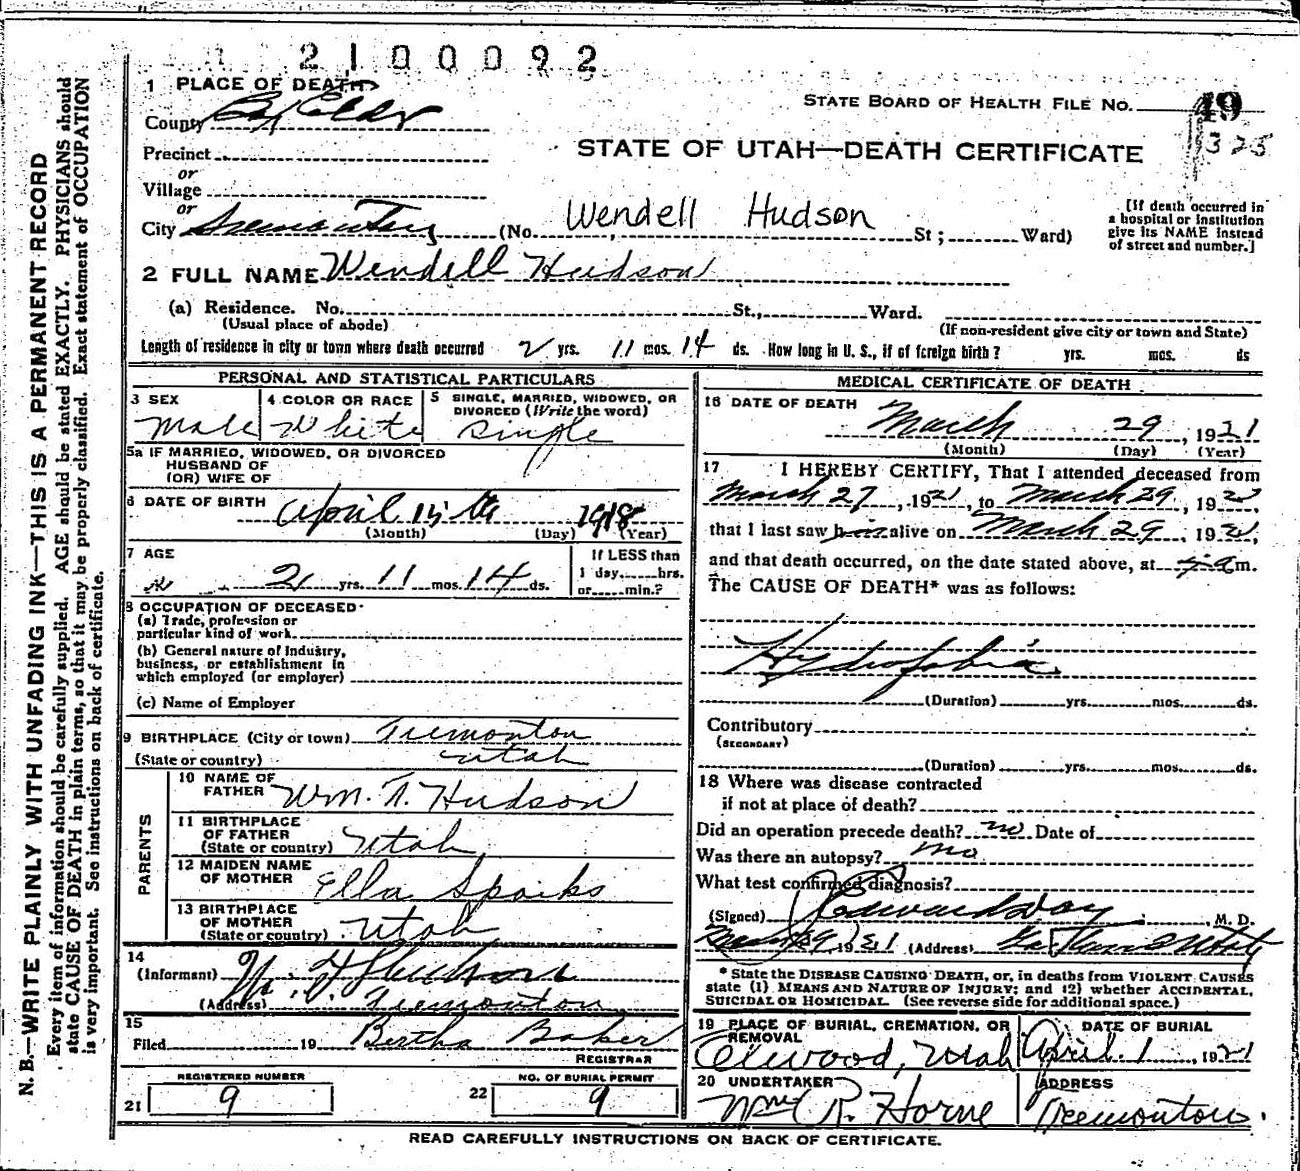 2100092
1 PLACE OF DEATH
County Box Elder
STATE BOARD OF HEALTH FILE NO. 49
325
Precinct
STATE OF UTAH—DEATH CERTIFICATE
or
Village
or
City Tremonton (No. Wendell Hudson St; Ward)
[If death occurred in
a hospital or institution
give its NAME instead
of street and number.]
2 FULL NAME Wendell Hudson
(a) Residence. No. St., Ward.
(Usual place of abode) (If non-resident give city or town and State)
Length of residence in city or town where death occurred 2 yrs. 11 mos. 14 ds. How long in U. S., if of foreign birth? yrs. mos. ds
PERSONAL AND STATISTICAL PARTICULARS
3 SEX 4 COLOR OR RACE 5 SINGLE, MARRIED, WIDOWED, OR
DIVORCED (Write the word)
Male White Single
5a IF MARRIED, WIDOWED, OR DIVORCED
HUSBAND OF
(OR) WIFE OF
6 DATE OF BIRTH April 15th 1918
(Month) (Day) (Year)
7 AGE If LESS than
2 yrs. 11 mos. 14 ds. 1 day, hrs.
or min.?
8 OCCUPATION OF DECEASED
(a) Trade, profession or
particular kind of work
(b) General nature of Industry,
business, or establishment in
which employed (or employer)
(c) Name of Employer
9 BIRTHPLACE (City or town) Tremonton
(State or country) Utah
PARENTS
10 NAME OF
FATHER Wm. F. Hudson
11 BIRTHPLACE
OF FATHER
(State or country) Utah
12 MAIDEN NAME
OF MOTHER Ella Sparks
13 BIRTHPLACE
OF MOTHER
(State or country) Utah
14
(Informant) W. F. Hudson
(Address) Tremonton
15
Filed 19 Bertha Baker
REGISTRAR
REGISTERED NUMBER NO. OF BURIAL PERMIT
21 9 22 9
MEDICAL CERTIFICATE OF DEATH
16 DATE OF DEATH March 29, 1921
(Month) (Day) (Year)
17 I HEREBY CERTIFY, That I attended deceased from
March 27, 1921, to March 29, 1921,
that I last saw him alive on March 29, 1921,
and that death occurred, on the date stated above, at m.
The CAUSE OF DEATH* was as follows:
Hydrofobia
(Duration) yrs. mos. ds.
Contributory
(SECONDARY)
(Duration) yrs. mos. ds.
18 Where was disease contracted
if not at place of death?
Did an operation precede death? no Date of
Was there an autopsy? no
What test confirmed diagnosis?
(Signed) , M. D.
March 29, 1921 (Address)
* State the DISEASE CAUSING DEATH, or, in deaths from VIOLENT CAUSES
state (1) MEANS AND NATURE OF INJURY; and (2) whether ACCIDENTAL,
SUICIDAL OR HOMICIDAL. (See reverse side for additional space.)
19 PLACE OF BURIAL, CREMATION, OR DATE OF BURIAL
REMOVAL
Elwood, Utah April 1, 1921
20 UNDERTAKER ADDRESS
Wm R. Horne Tremonton.
READ CAREFULLY INSTRUCTIONS ON BACK OF CERTIFICATE.
N. B.—WRITE PLAINLY WITH UNFADING INK—THIS IS A PERMANENT RECORD
Every item of information should be carefully supplied. AGE should be stated EXACTLY. PHYSICIANS should
state CAUSE OF DEATH in plain terms, so that it may be properly classified. Exact statement of OCCUPATION
is very important. See instructions on back of certificate.